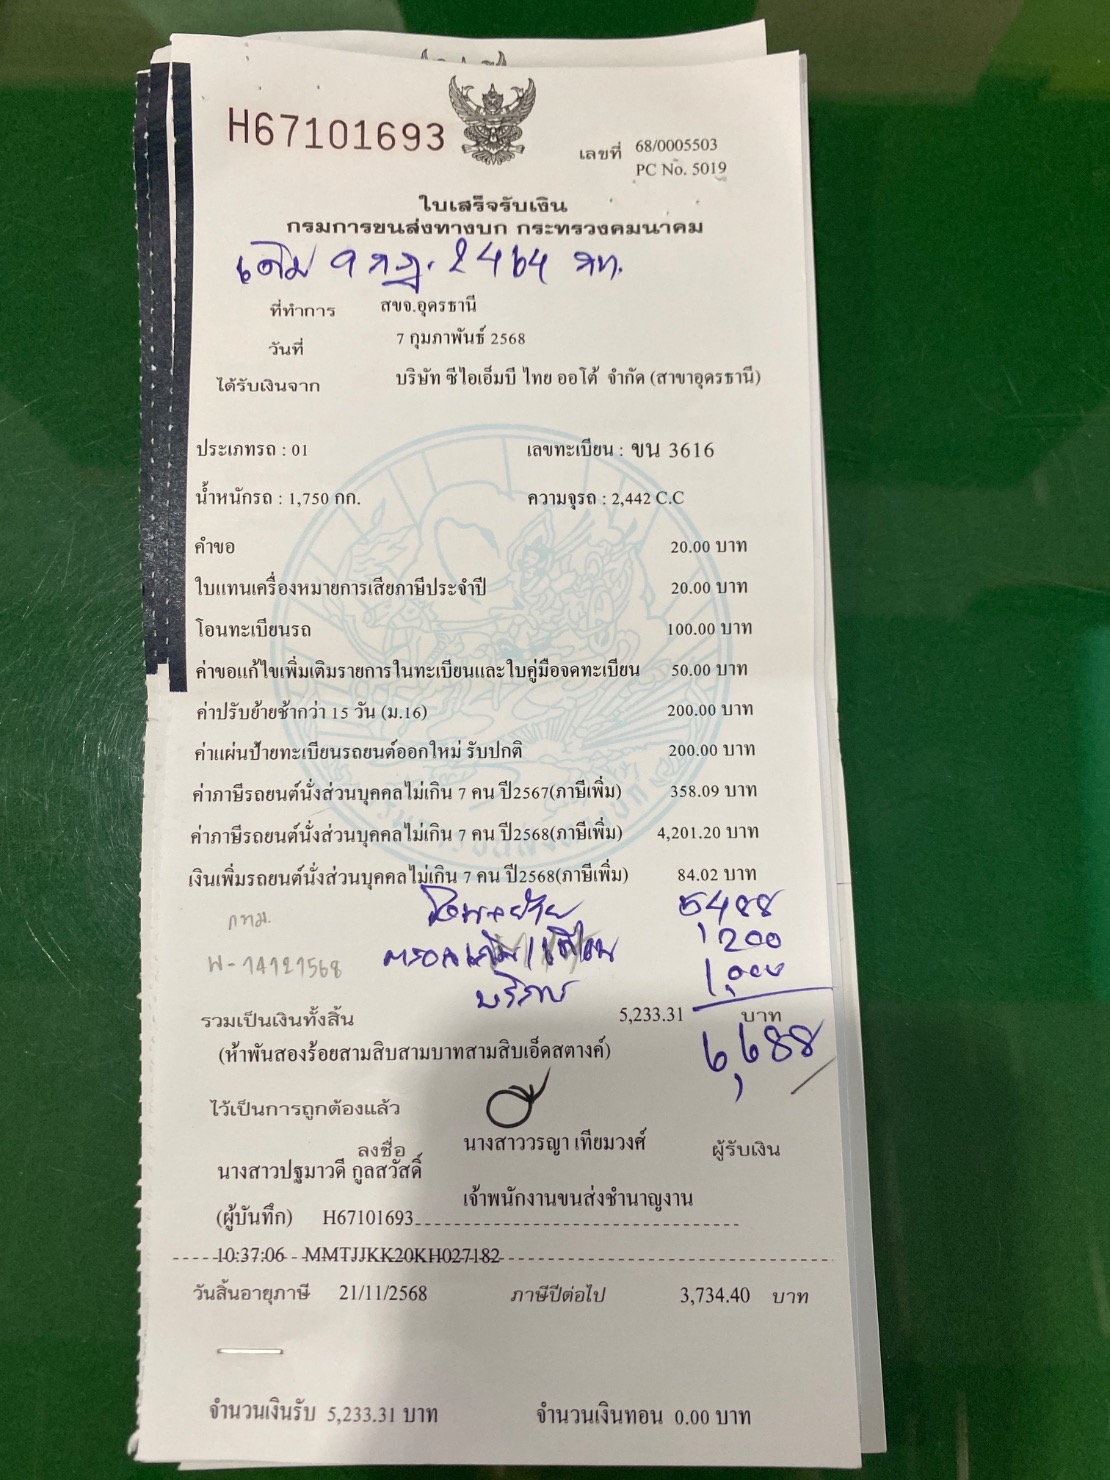 H67101693
เลขที่ 68/0005503
PC No. 5019
ใบเสร็จรับเงิน
กรมการขนส่งทางบก กระทรวงคมนาคม
เดิม 9 กฎ. 2464 กท.
ที่ทำการ สขจ.อุดรธานี
วันที่ 7 กุมภาพันธ์ 2568
ได้รับเงินจาก บริษัท ซีไอเอ็มบี ไทย ออโต้ จำกัด (สาขาอุดรธานี)
ประเภทรถ : 01 เลขทะเบียน : ขน 3616
น้ำหนักรถ : 1,750 กก. ความจุรถ : 2,442 C.C
คำขอ 20.00 บาท
ใบแทนเครื่องหมายการเสียภาษีประจำปี 20.00 บาท
โอนทะเบียนรถ 100.00 บาท
ค่าขอแก้ไขเพิ่มเติมรายการในทะเบียนและใบคู่มือจดทะเบียน 50.00 บาท
ค่าปรับย้ายช้ากว่า 15 วัน (ม.16) 200.00 บาท
ค่าแผ่นป้ายทะเบียนรถยนต์ออกใหม่ รับปกติ 200.00 บาท
ค่าภาษีรถยนต์นั่งส่วนบุคคลไม่เกิน 7 คน ปี2567(ภาษีเพิ่ม) 358.09 บาท
ค่าภาษีรถยนต์นั่งส่วนบุคคลไม่เกิน 7 คน ปี2568(ภาษีเพิ่ม) 4,201.20 บาท
เงินเพิ่มรถยนต์นั่งส่วนบุคคลไม่เกิน 7 คน ปี2568(ภาษีเพิ่ม) 84.02 บาท
กทม. โอน+ย้าย 5,488
พ-14121568 200
บริการ 1,000
รวมเป็นเงินทั้งสิ้น 5,233.31 บาท
(ห้าพันสองร้อยสามสิบสามบาทสามสิบเอ็ดสตางค์) 6,688
ไว้เป็นการถูกต้องแล้ว
ลงชื่อ นางสาววรญา เทียมวงศ์ ผู้รับเงิน
นางสาวปฐมาวดี กูลสวัสดิ์
เจ้าพนักงานขนส่งชำนาญงาน
(ผู้บันทึก) H67101693
10:37:06 MMTJJKK20KH027182
วันสิ้นอายุภาษี 21/11/2568 ภาษีปีต่อไป 3,734.40 บาท
จำนวนเงินรับ 5,233.31 บาท จำนวนเงินทอน 0.00 บาท